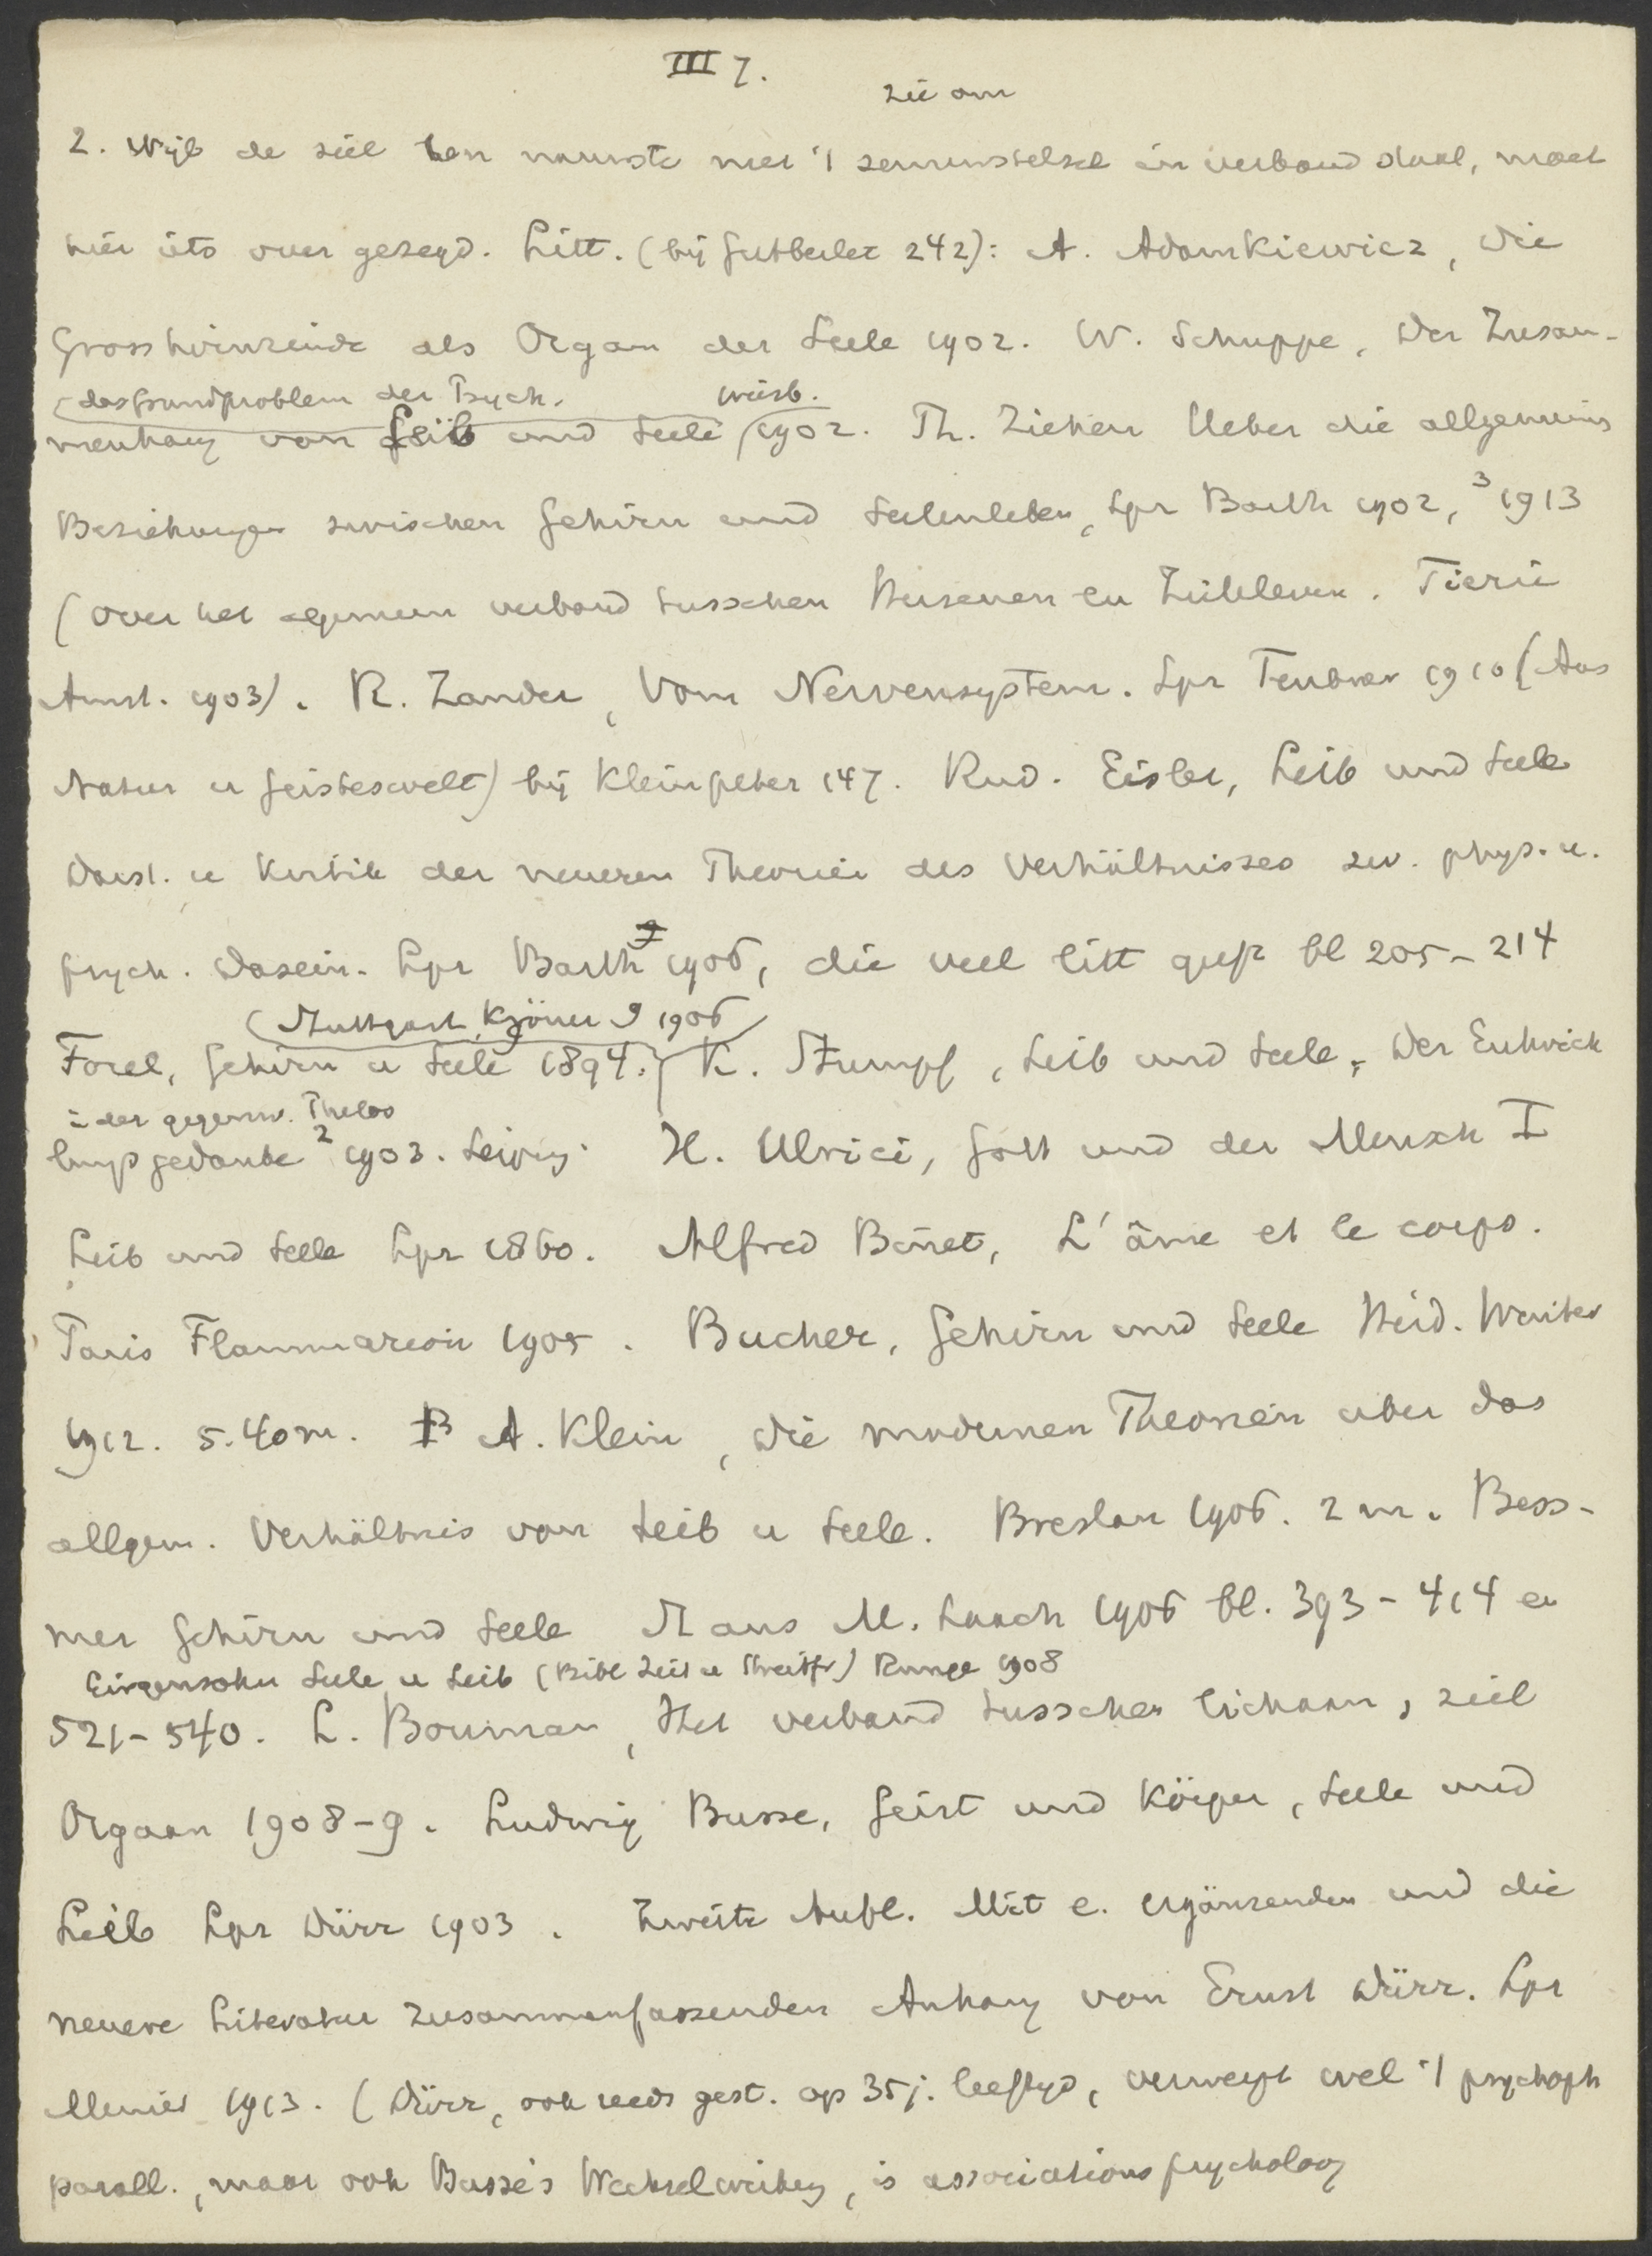 III 7.
zie om
2. Wijl de ziel ten nauwste met 't zenuwstelsel in verband staat, moet
hier iets over gezegd. Litt. (bij Gutberlet 242): A. Adamkiewicz, Die
Grosshirnrinde als Organ der Seele 1902. W. Schuppe, Der Zusam-
(das Grundproblem der Psych. Wiesb.
menhang von Leib und Seele 1902. Th. Ziehen Ueber die allgemeins
Beziehungen zwischen Gehirn und Seelenleben, Lpz Barth 1902, ³1913
(Over het algemeen verband tusschen Hersenen en Zieleleven. Tierie
Amst. 1903). R. Zander, Vom Nervensystem. Lpz Teubner 1910 (Aus
Natur u Geisteswelt) bij Kleinpeter 147. Rud. Eisler, Leib und Seele
Darst. u Kritik der neueren Theorien des Verhältnisses zw. phys. u.
psych. Dasein. Lpz Barth 1906, die veel litt geeft bl 205-214
(Stuttgart Kröner 9 1906
Forel, Gehirn u Seele 1894. K. Stumpf, Leib und Seele, Der Entwick
in der gegenw. Philos
lungsgedanke ² 1903. Leipzig. H. Ulrici, Gott und der Mensch I
Leib und Seele Lpz 1860. Alfred Binet, L'âme et le corps.
Paris Flammarion 1905. Bucher, Gehirn und Seele Heid. Winter
1912. 5.40 m. A. Klein, Die modernen Theorien über das
allgem. Verhältnis von Leib u Seele. Breslau 1906. 2 m. Bess-
mer Gehirn und Seele St aus M. Laach 1906 bl. 393-414 en
Girgensohn Seele u Leib (Bibl Zeit u Streitfr) Runge 1908
521-540. L. Bouman, Het verband tusschen lichaam, ziel
Orgaan 1908-9. Ludwig Busse, Geist und Körper, Seele und
Leib Lpz Dürr 1903. Zweite Aufl. Mit e. ergänzenden und die
neuere Literatur zusammenfassenden Anhang von Ernst Dürr. Lpz
Meiner 1913. (Dürr, ook reeds gest. op 35 j. leeftijd, verwerpt wel 't psychoph
parall., maar ook Busse's Wechselwirkung, is associationspsycholoog